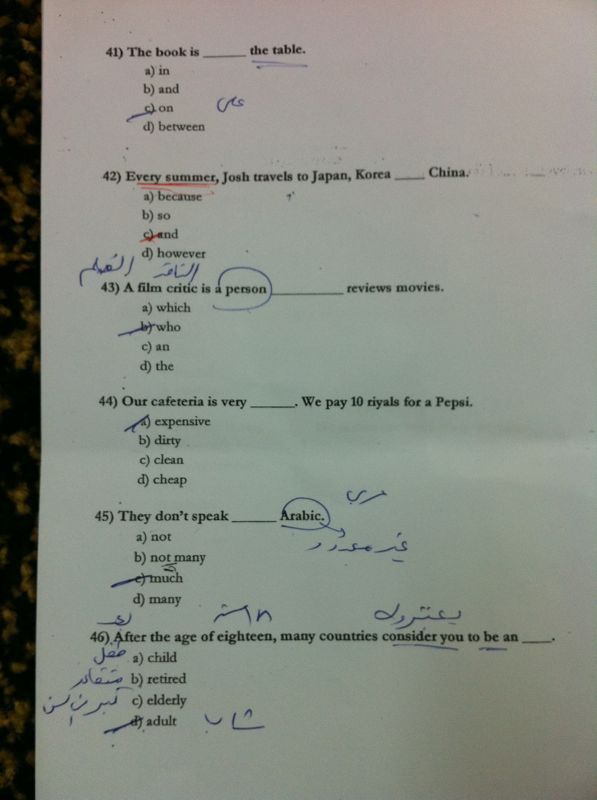 41) The book is ______ the table.
a) in
b) and
c) on على
d) between
42) Every summer, Josh travels to Japan, Korea ____ China.
a) because
b) so
c) and
d) however
الناقد الفيلم
43) A film critic is a person __________ reviews movies.
a) which
b) who
c) an
d) the
44) Our cafeteria is very ______. We pay 10 riyals for a Pepsi.
a) expensive
b) dirty
c) clean
d) cheap
عربي
45) They don't speak ______ Arabic.
a) not
غير معدود
b) not many
c) much
d) many
بعد ١٨ سنة يعتبروك
46) After the age of eighteen, many countries consider you to be an ____.
طفل a) child
متقاعد b) retired
كبير في السن c) elderly
d) adult شاب